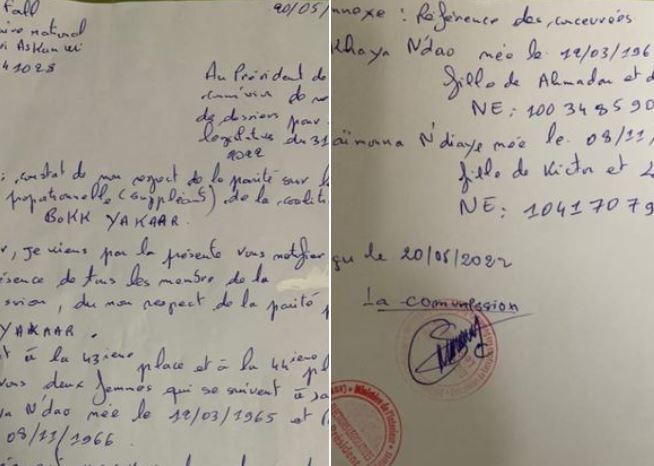 Fall
20/05/
national
Askan wi
41028
Au Président de
de
de dossiers pour
législatives du 31
2022
: constat de non respect de la parité sur
proportionnelle (suppléants) de la
BOKK YAKAAR.
r, je viens par la présente vous notifier
de tous les membre de la
ssion, du non respect de la parité
YAKAAR.
t à la 43ieme place et à la 44ieme pl
vous deux femmes qui se suivent à sa
N'dao née le 12/03/1965 et
08/11/1966.
nnexe : Référence des concernées
Khaya N'dao née le 12/03/196
fille de Ahmadou et d
NE: 100 348590
N'diaye née le 08/11/
fille de Victor et
NE: 1041 7079
çu le 20/05/2022
La commission